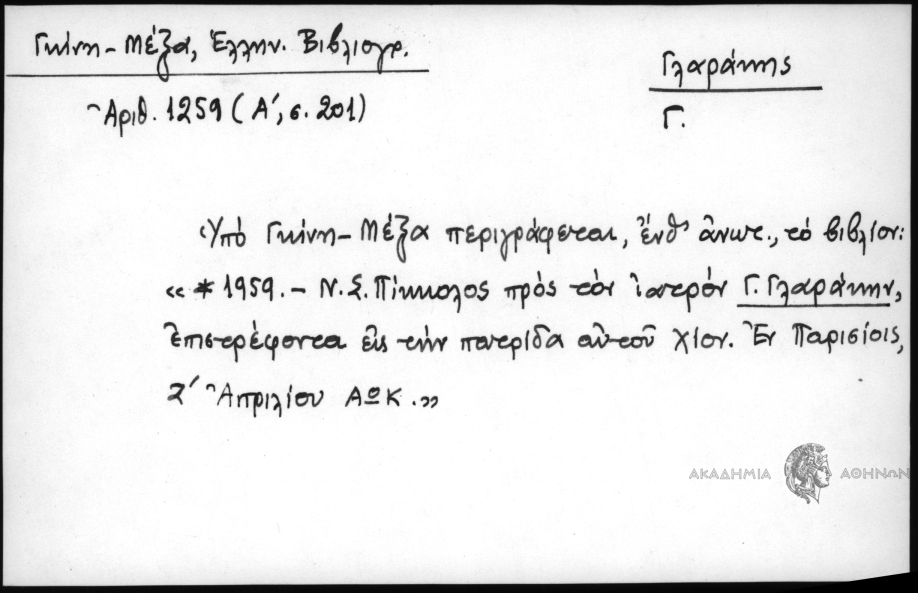 Γκίνη - Μέξα, Ἑλλην. Βιβλιογρ.
Γλαράκης
Ἀριθ. 1259 (Α', σ. 201)
Γ.
Ὑπὸ Γκίνη - Μέξα περιγράφεται, ἔνθ' ἄνωτ., τὸ βιβλίον:
« * 1959. - Ν. Σ. Πίκκολος πρὸς τὸν ἰατρὸν Γ. Γλαράκην,
ἐπιστρέφοντα εἰς τὴν πατρίδα αὐτοῦ Χίον. Ἐν Παρισίοις,
Ἀπριλίου ΑΩΚ. »
ΑΚΑΔΗΜΙΑ ΑΘΗΝΩΝ